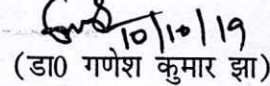 10/10/19
(डा0 गणेश कुमार झा)